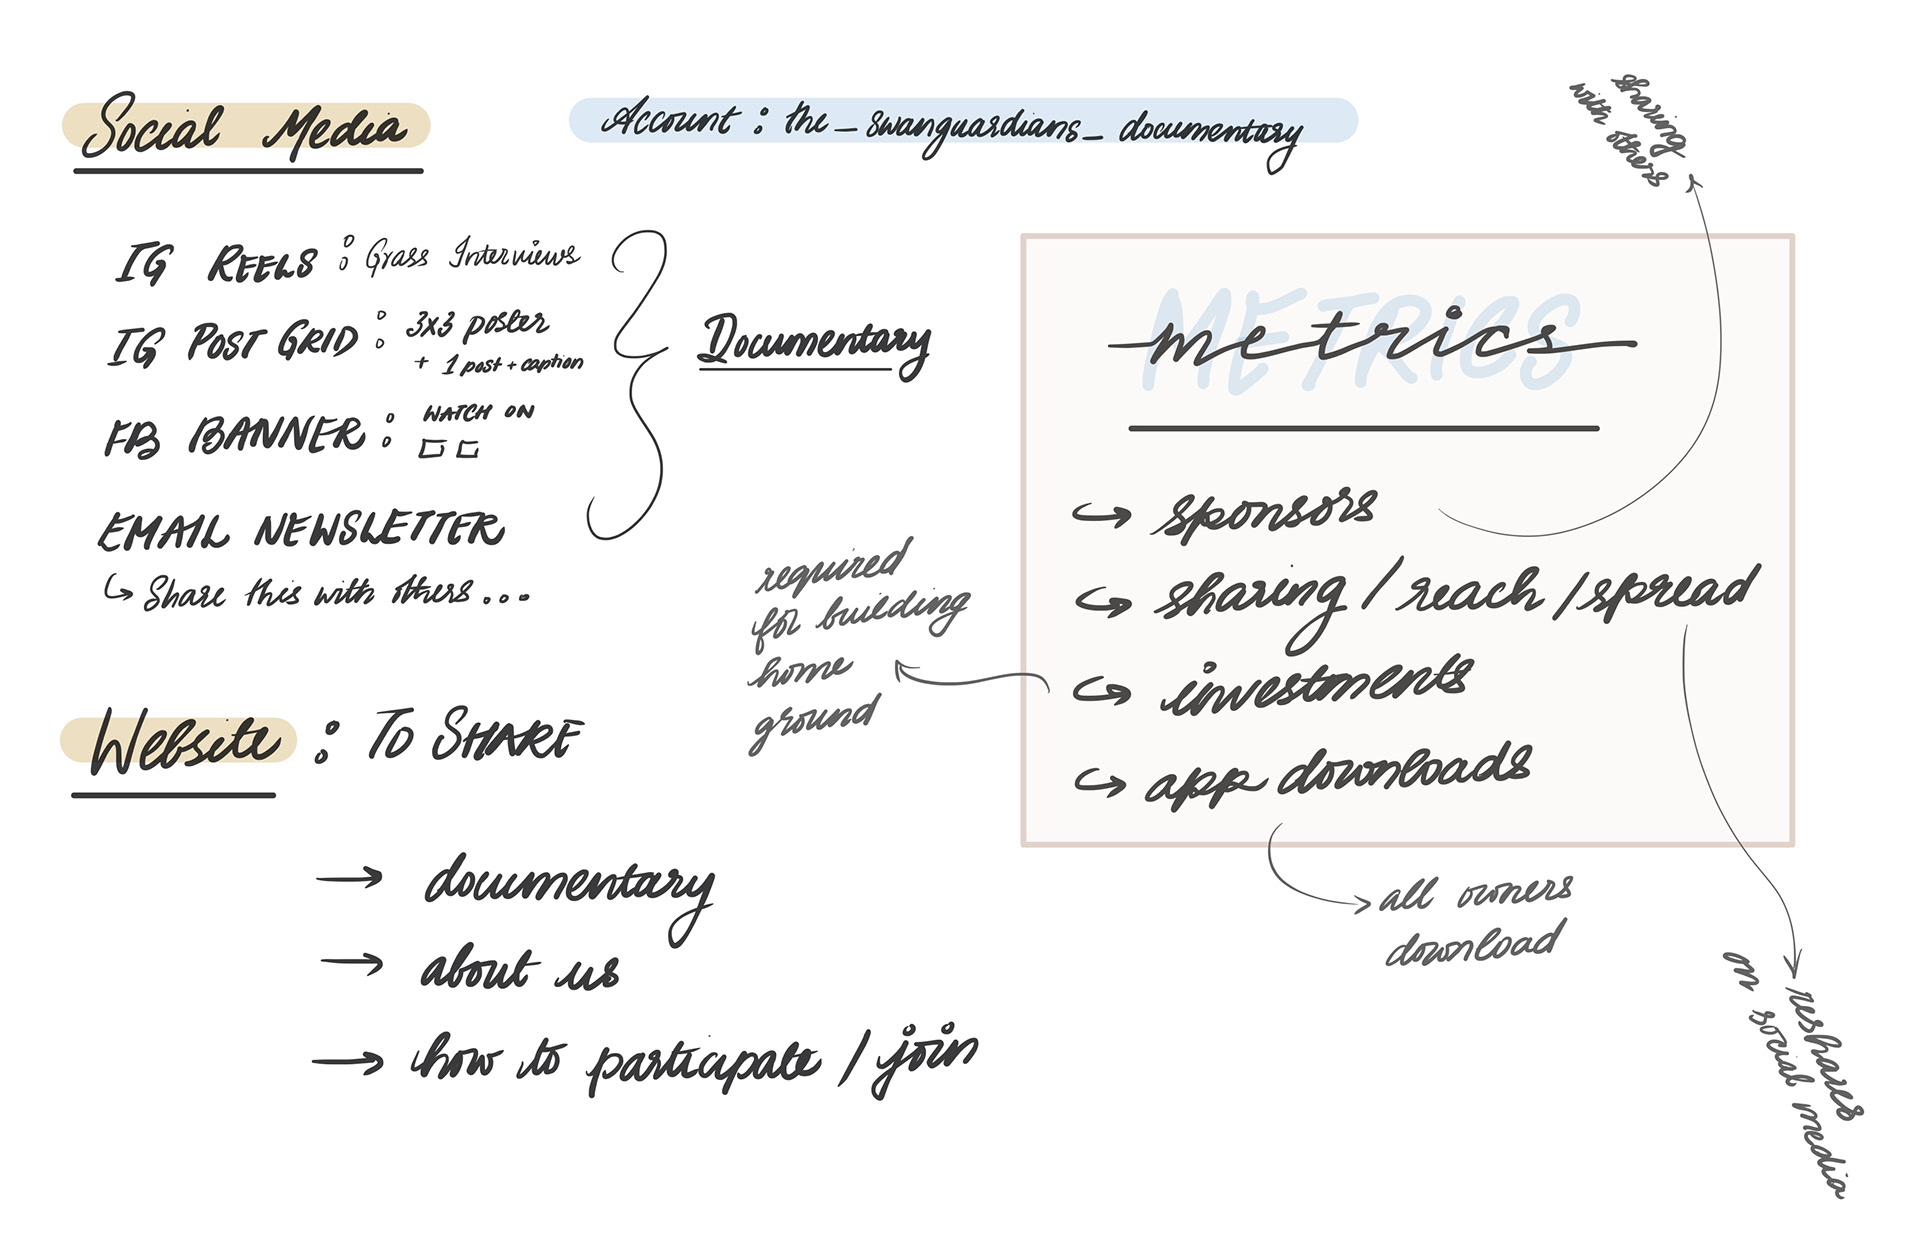 Social Media
Account : the_swanguardians_documentary
IG REELS : Grass Interviews
IG POST GRID : 3x3 poster
+ 1 post + caption
FB BANNER : WATCH ON
EMAIL NEWSLETTER
↳ Share this with others...
Documentary
Website : TO SHARE
→ documentary
→ about us
→ how to participate / join
METRICS
metrics
↪ sponsors
↪ sharing / reach / spread
↪ investments
↪ app downloads
sharing
with others
required
for building
home
ground
all owners
download
reshares
on social media